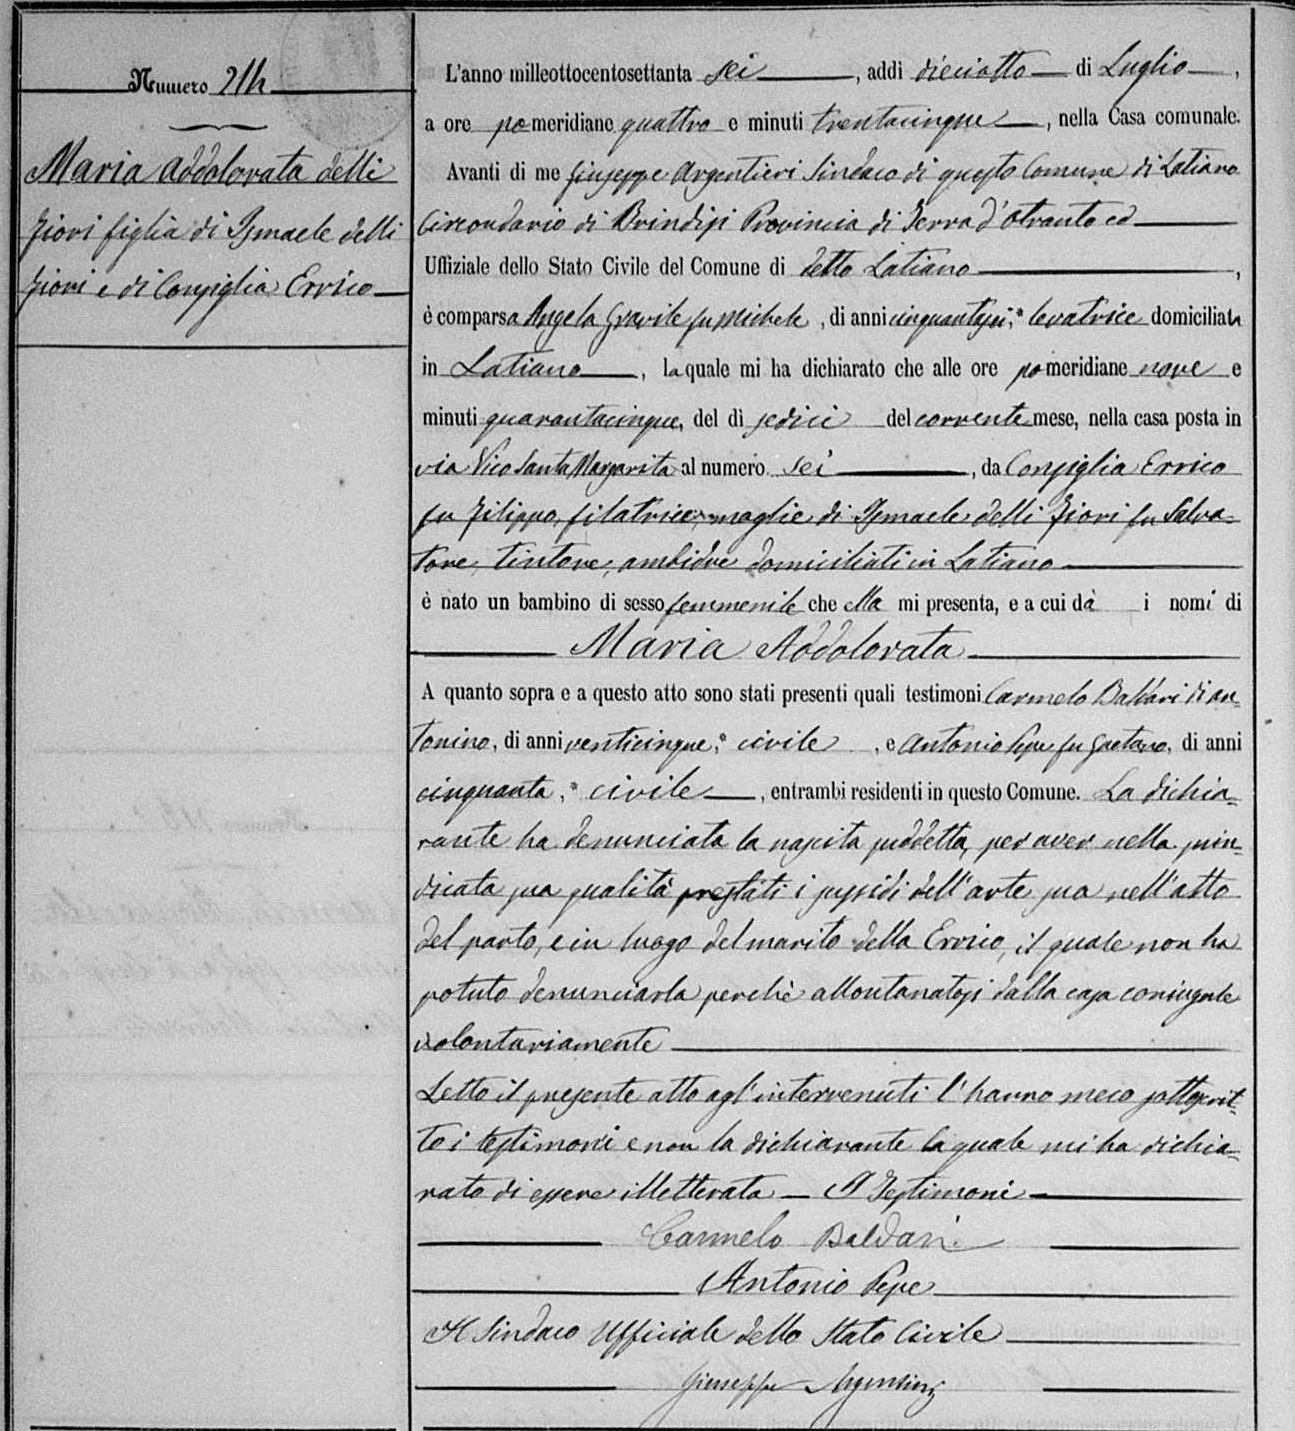 Numero 214
Maria Addolorata delli
Fiori figlia di Ismaele delli
Fiori e di Consiglia Errico
L'anno milleottocentosettanta sei, addi dieciotto di Luglio,
a ore pomeridiane quattro e minuti trentacinque, nella Casa comunale.
Avanti di me Giuseppe Argentieri Sindaco di questo Comune di Latiano
Circondario di Brindisi Provincia di Terra d'Otranto ed
Uffiziale dello Stato Civile del Comune di detto Latiano,
è comparsa Angela Gravile fu Michele, di anni cinquantasei, levatrice domiciliata
in Latiano, la quale mi ha dichiarato che alle ore pomeridiane nove e
minuti quarantacinque, del dì sedici del corrente mese, nella casa posta in
via Vico Santa Margarita al numero sei, da Consiglia Errico
fu Filippo, filatrice, moglie di Ismaele delli Fiori fu Salva=
tore, tintore, ambidue domiciliati in Latiano
è nato un bambino di sesso femmenile che ella mi presenta, e a cui dà i nomi di
Maria Addolorata
A quanto sopra e a questo atto sono stati presenti quali testimoni Carmelo Baldari di An=
tonino, di anni venticinque, civile, e Antonio Pepe fu Gaetano, di anni
cinquanta, civile, entrambi residenti in questo Comune. La dichia=
rante ha denunciata la nascita suddetta, per aver nella sin=
dicata sua qualità prestati i sussidi dell'arte sua nell'atto
del parto, e in luogo del marito della Errico, il quale non ha
potuto denunciarla perchè allontanatosi dalla casa coniugale
volontariamente
Letto il presente atto agl'intervenuti l'hanno meco sottoscrit=
to i testimoni e non la dichiarante la quale mi ha dichia=
rato di essere illetterata — I Testimoni
Carmelo Baldari
Antonio Pepe
Il Sindaco Ufficiale dello Stato Civile
Giuseppe Argentieri